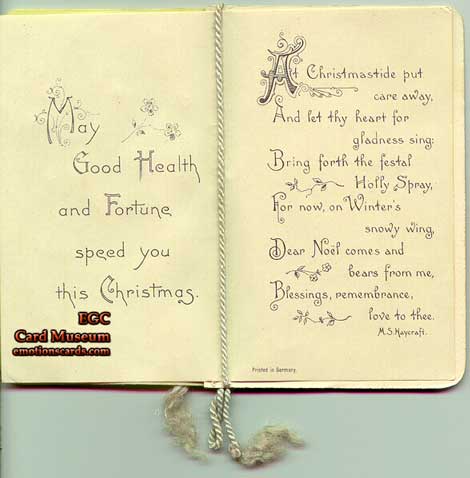 May
Good Health
and Fortune
speed you
this Christmas.
EGC
Card Museum
emotionscards.com
At Christmastide put
care away,
And let thy heart for
gladness sing:
Bring forth the festal
Holly Spray,
For now, on Winter's
snowy wing,
Dear Noël comes and
bears from me,
Blessings, remembrance,
love to thee.
M.S. Haycraft.
Printed in Germany.